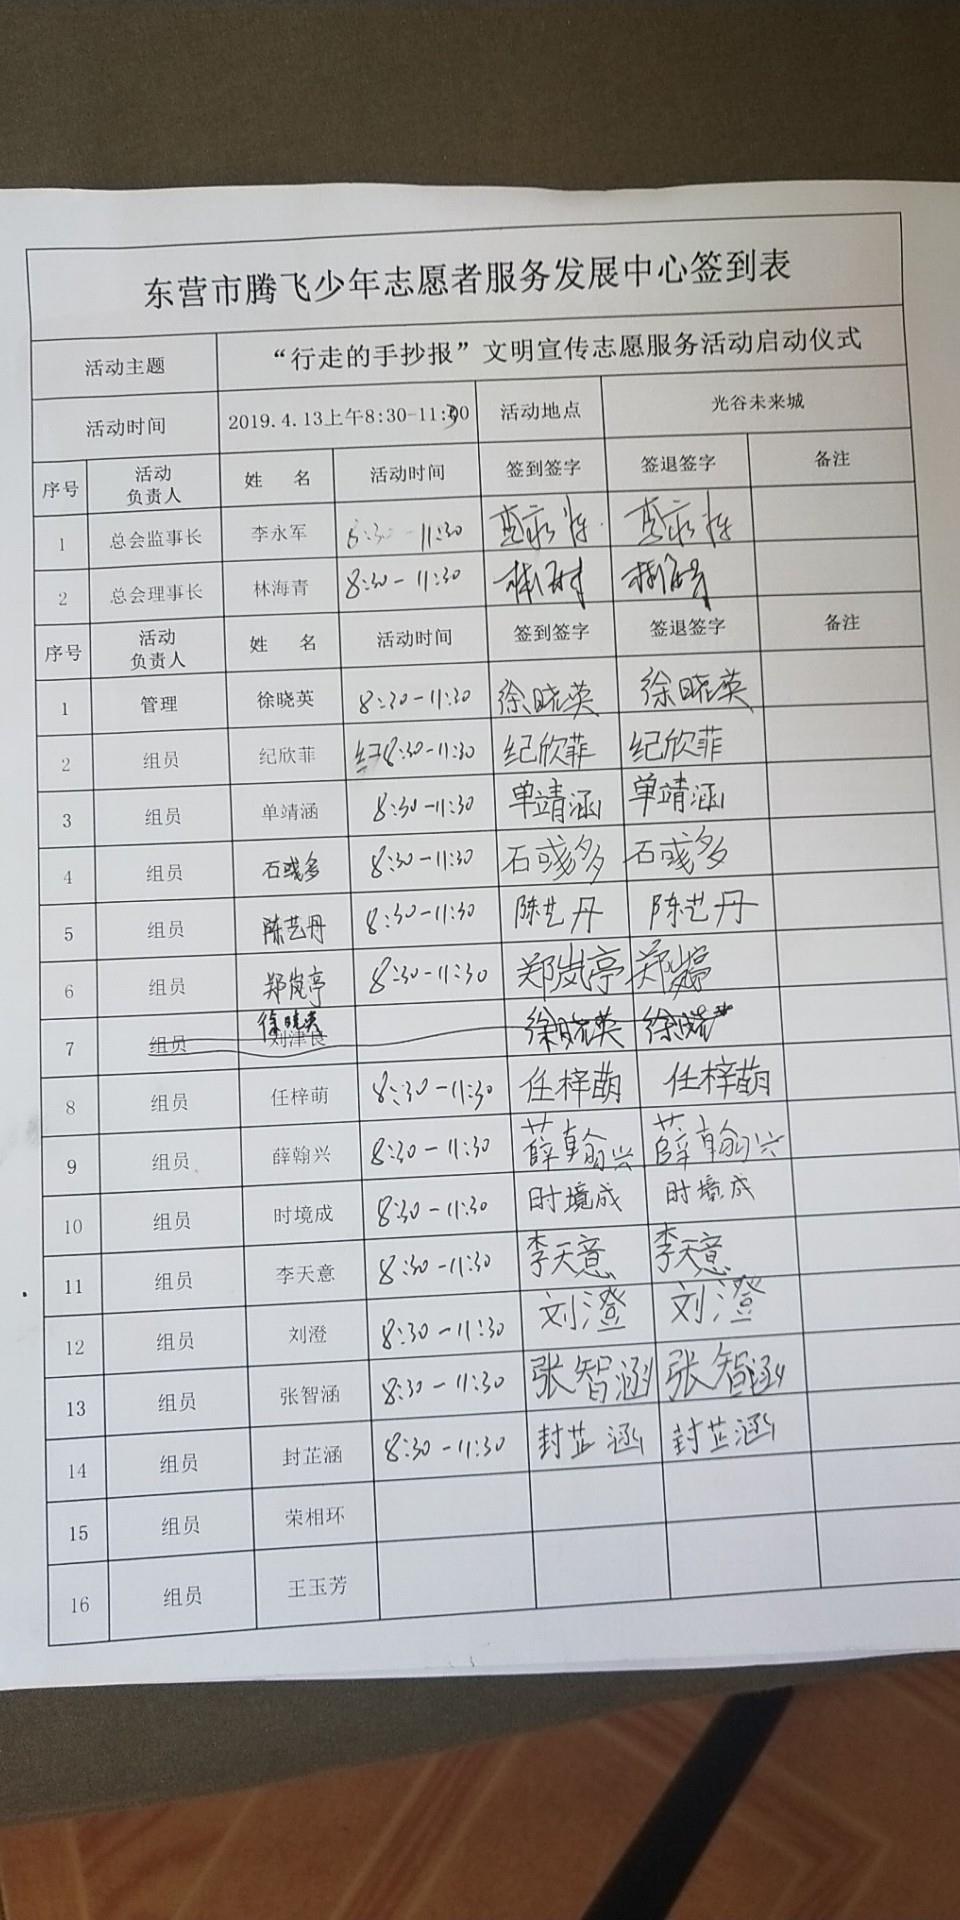 东营市腾飞少年志愿者服务发展中心签到表
活动主题 “行走的手抄报”文明宣传志愿服务活动启动仪式
活动时间 2019.4.13上午8:30-11:30 活动地点 光谷未来城
序号 活动负责人 姓 名 活动时间 签到签字 签退签字 备注
1 总会监事长 李永军 8:30-11:30
2 总会理事长 林海青 8:30-11:30
序号 活动负责人 姓 名 活动时间 签到签字 签退签字 备注
1 管理 徐晓英 8:30-11:30 徐晓英 徐晓英
2 组员 纪欣菲 8:30-11:30 纪欣菲 纪欣菲
3 组员 单靖涵 8:30-11:30 单靖涵 单靖涵
4 组员 石彧多 8:30-11:30 石彧多 石彧多
5 组员 陈艺丹 8:30-11:30 陈艺丹 陈艺丹
6 组员 郑岚亭 8:30-11:30 郑岚亭 郑岚
徐晓英
7 组员 刘津良 徐晓英 徐晓
8 组员 任梓萌 8:30-11:30 任梓萌 任梓萌
9 组员 薛翰兴 8:30-11:30 薛翰兴 薛翰兴
10 组员 时境成 8:30-11:30 时境成 时境成
11 组员 李天意 8:30-11:30 李天意 李天意
12 组员 刘澄 8:30-11:30 刘澄 刘澄
13 组员 张智涵 8:30-11:30 张智涵 张智涵
14 组员 封芷涵 8:30-11:30 封芷涵 封芷涵
15 组员 荣相环
16 组员 王玉芳